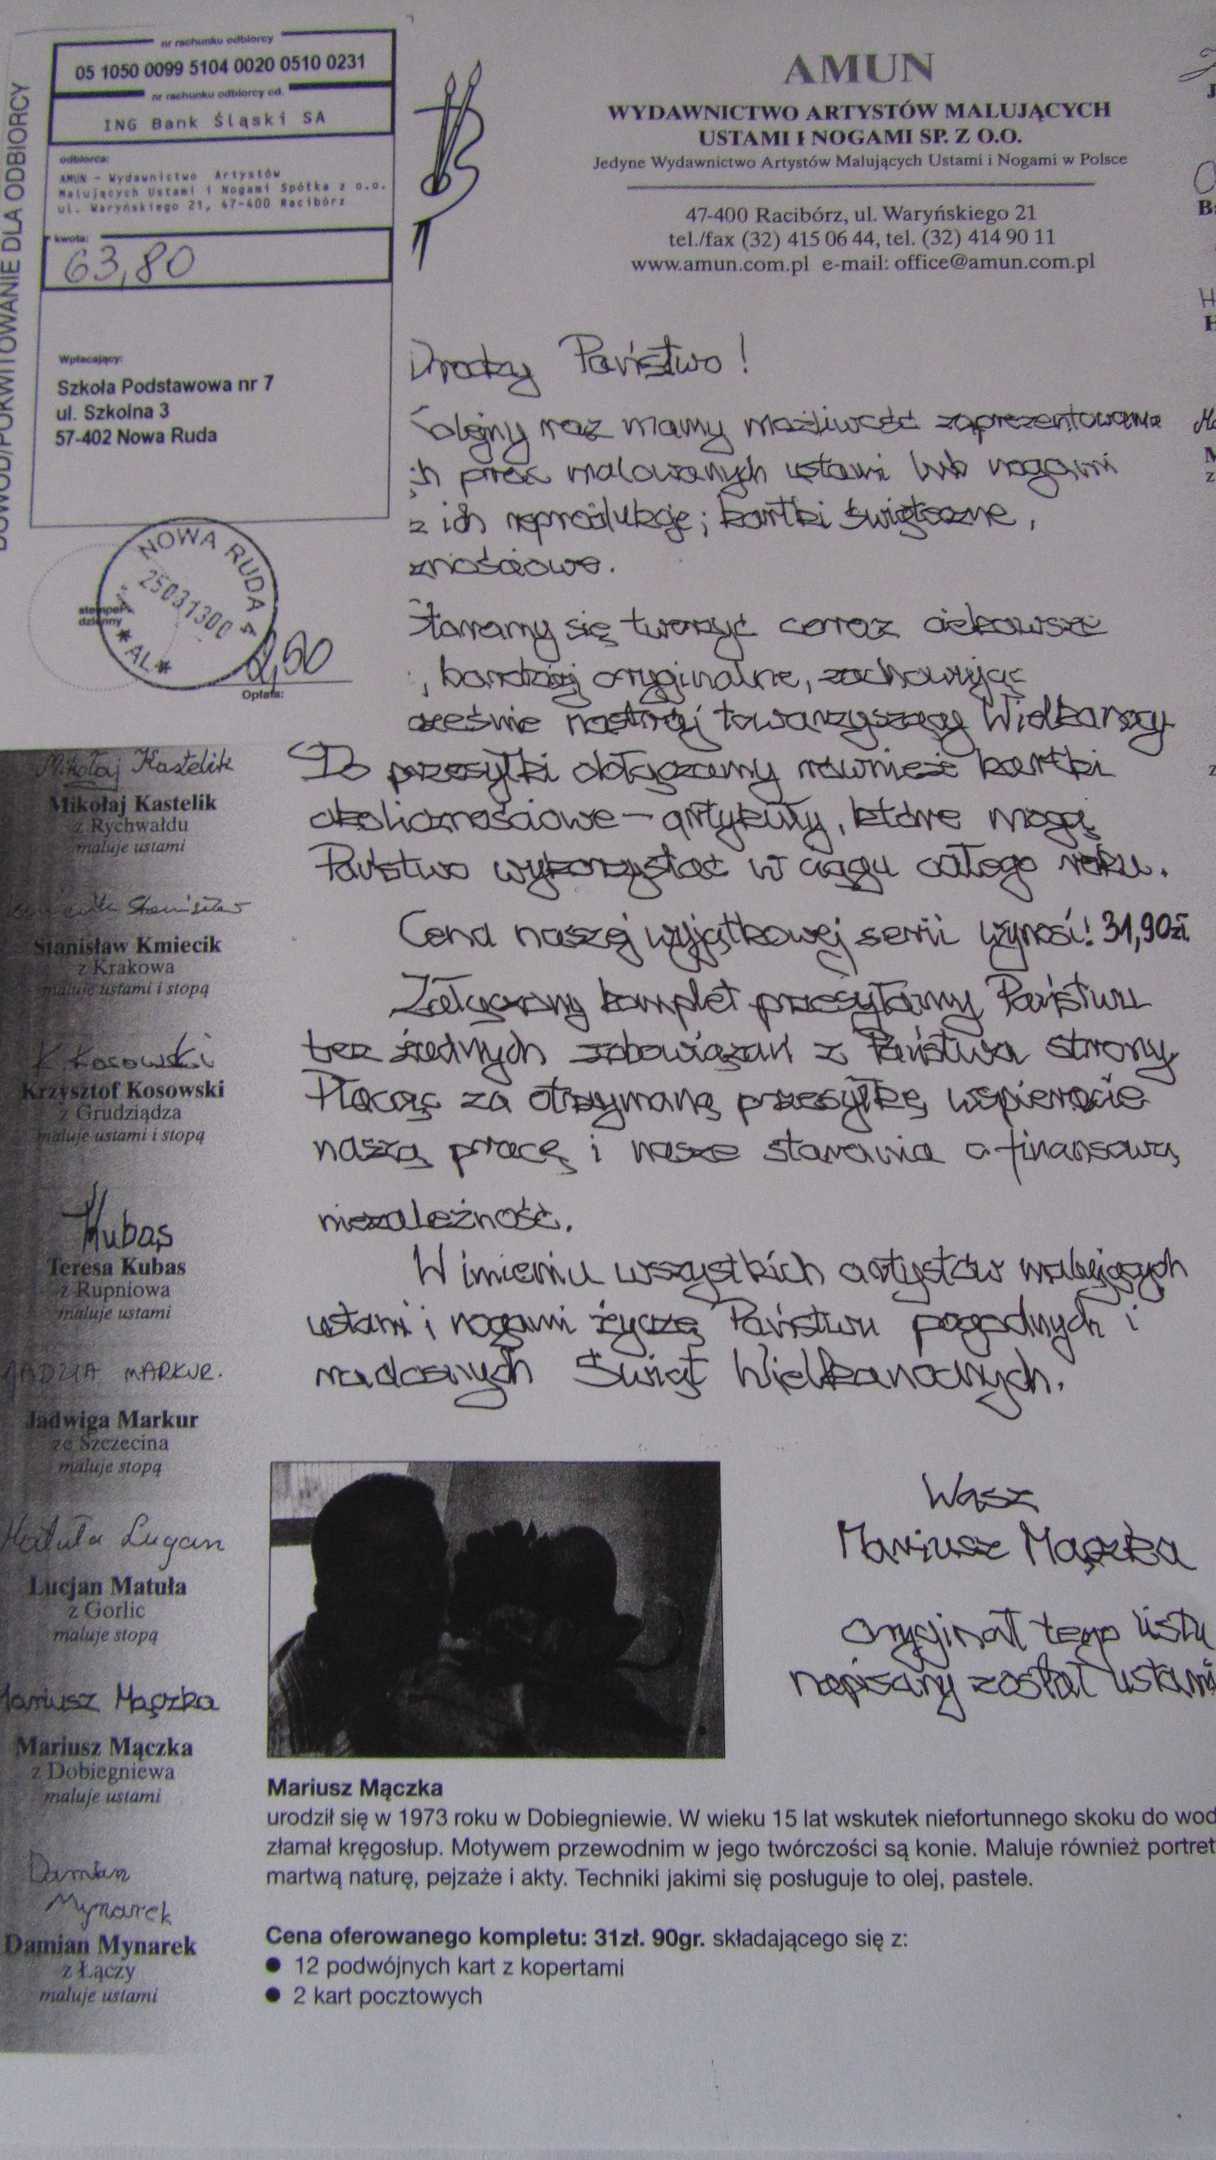 DOWÓD/POKWITOWANIE DLA ODBIORCY
nr rachunku odbiorcy
05 1050 0099 5104 0020 0510 0231
nr rachunku odbiorcy cd.
ING Bank Śląski SA
odbiorca:
AMUN - Wydawnictwo Artystów
Malujących Ustami i Nogami Spółka z o.o.
ul. Waryńskiego 21, 47-400 Racibórz
kwota:
63,80
Wpłacający:
Szkoła Podstawowa nr 7
ul. Szkolna 3
57-402 Nowa Ruda
NOWA RUDA 4
25031300
stempel
dzienny
Opłata:
AMUN
WYDAWNICTWO ARTYSTÓW MALUJĄCYCH
USTAMI I NOGAMI SP. Z O.O.
Jedyne Wydawnictwo Artystów Malujących Ustami i Nogami w Polsce
47-400 Racibórz, ul. Waryńskiego 21
tel./fax (32) 415 06 44, tel. (32) 414 90 11
www.amun.com.pl e-mail: office@amun.com.pl
Drodzy Państwo!
Kolejny raz mamy możliwość zaprezentowania
ch prac malowanych ustami lub nogami
z ich reprodukcje; kartki świąteczne,
znościowe.
Staramy się tworzyć coraz ciekawsze
, bardziej oryginalne, zachowując
cześnie nastrój towarzyszący Wielkanocy.
Do przesyłki dołączamy również kartki
okolicznościowe - artykuły, które mogą
Państwo wykorzystać w ciągu całego roku.
Cena naszej wyjątkowej serii wynosi! 31,90zł.
Załączony komplet przesyłamy Państwu
bez żadnych zobowiązań z Państwa strony
Płacąc za otrzymaną przesyłkę, wspieracie
naszą pracę i nasze starania o finansową
niezależność.
W imieniu wszystkich artystów malujących
ustami i nogami życzę Państwu pogodnych i
radosnych Świąt Wielkanocnych.
Wasz
Mariusz Mączka
Oryginał tego listu
napisany został ustami
Mikołaj Kastelik
Mikołaj Kastelik
z Rychwałdu
maluje ustami
Stanisław
Stanisław Kmiecik
z Krakowa
maluje ustami i stopą
K. Kosowski
Krzysztof Kosowski
z Grudziądza
maluje ustami i stopą
Kubas
Teresa Kubas
z Rupniowa
maluje ustami
JADZIA MARKUR.
Jadwiga Markur
ze Szczecina
maluje stopą
Matuła Lucjan
Lucjan Matuła
z Gorlic
maluje stopą
Mariusz Mączka
Mariusz Mączka
z Dobiegniewa
maluje ustami
Damian
Mynarek
Damian Mynarek
z Łączy
maluje ustami
Mariusz Mączka
urodził się w 1973 roku w Dobiegniewie. W wieku 15 lat wskutek niefortunnego skoku do wod
złamał kręgosłup. Motywem przewodnim w jego twórczości są konie. Maluje również portret
martwą naturę, pejzaże i akty. Techniki jakimi się posługuje to olej, pastele.
Cena oferowanego kompletu: 31zł. 90gr. składającego się z:
● 12 podwójnych kart z kopertami
● 2 kart pocztowych